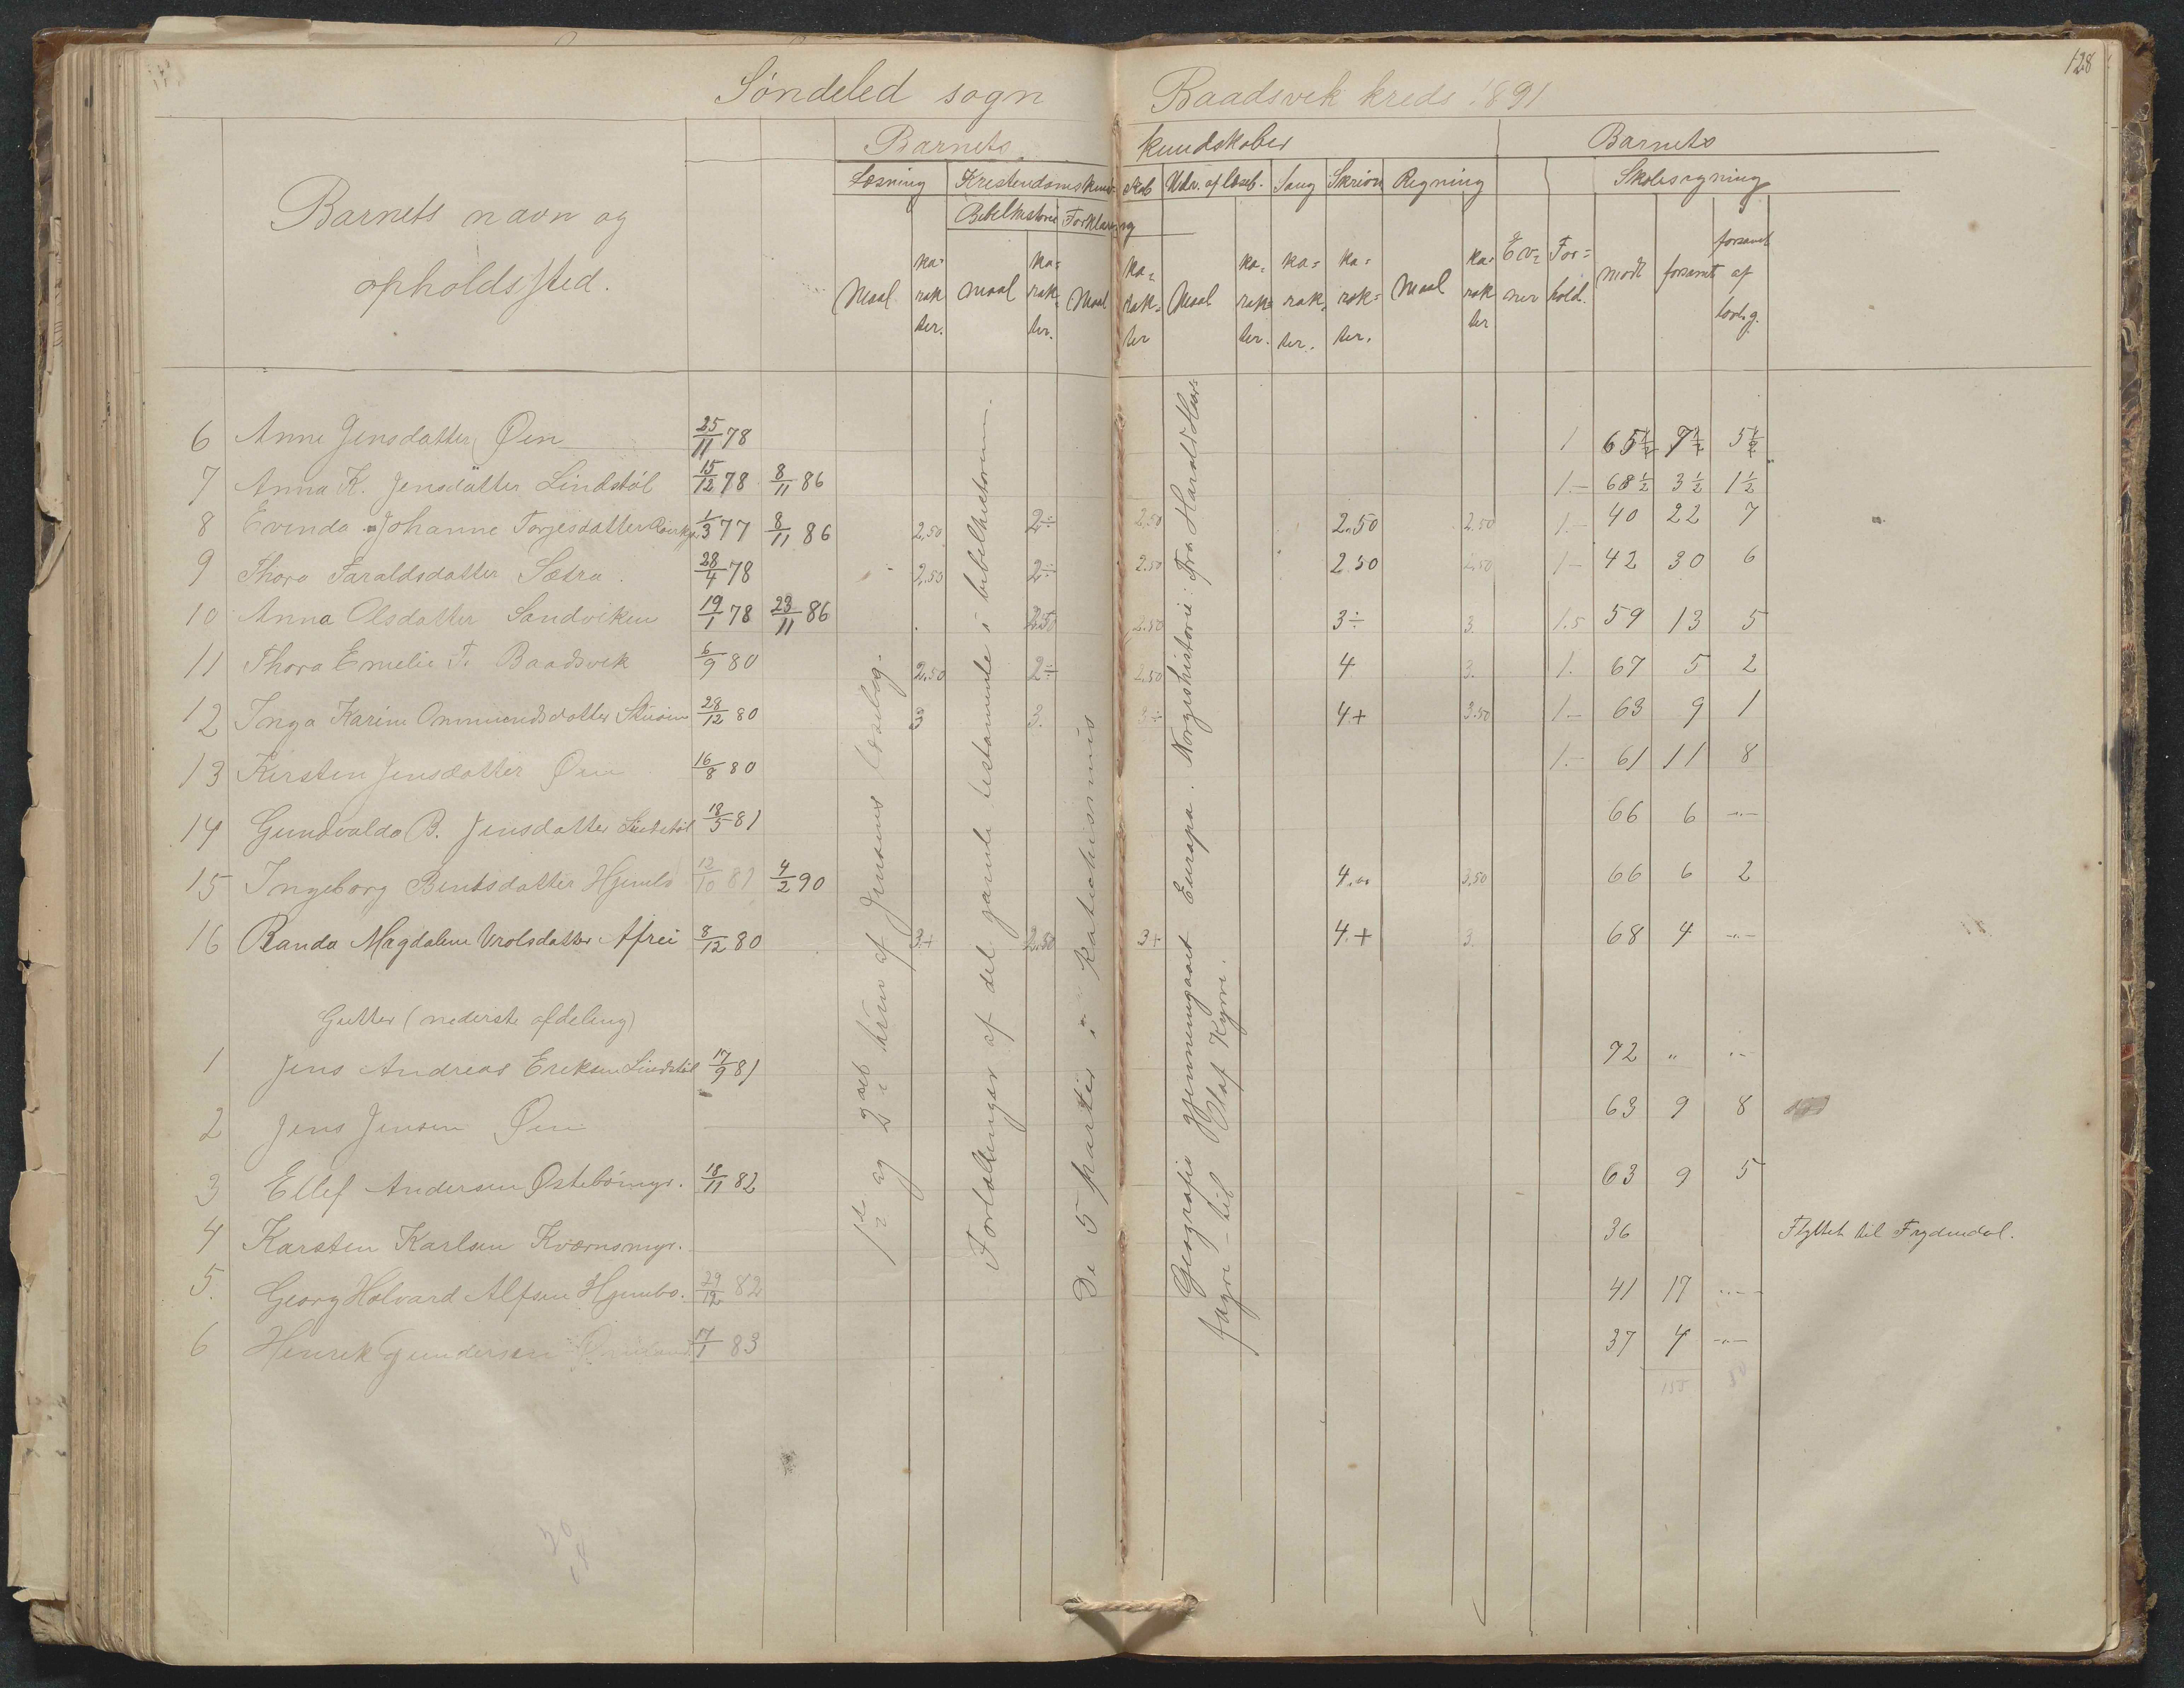 128
Søndeled sogn Baadsvik kreds 1891
Barnets kundskaber Barnets
Læsning Kristendomskund- skab Udv. af læseb. Sang Skrivn. Regning Skolesøgning
Bibelhistorie Forklaring
Barnets navn og
opholdssted.
Maal ka- rak ter. Maal ka- rak- ter. Maal ka- rak- ter Maal ka- rak- ter. ka- rak- ter. ka- rak- ter. Maal ka- rak ter Ev- ner For- hold. mødt forsømt forsømt af lovlig.
6 Anne Jensdatter Øen 25/11 78 1 65½ 7½ 5½
7 Anna K. Jensdatter Lindstøl 15/12 78 8/11 86 1.- 68½ 3½ 1½
8 Evinda Johanne Torjesdatter 1/3 77 8/11 86 2.50 2÷ 2.50 2.50 2.50 1.- 40 22 7
9 Thora Taraldsdatter Sætra. 28/4 78 2.50 2÷ 2.50 2.50 2.50 1- 42 30 6
10 Anna Olsdatter Sandviken 19/1 78 23/11 86 2.50 2.50 3÷ 3. 1.5 59 13 5
11 Thora Emelie T. Baadsvik 6/9 80 2.50 2÷ 2.50 4 3. 1. 67 5 2
12 Inga Karine Ommundsdatter 28/12 80 3 3. 3÷ 4+ 3.50 1- 63 9 1
13 Kirsten Jensdatter Øen 16/8 80 1.- 61 11 8
14 Gundvalda B. Jensdatter Lindstøl 18/5 81 66 6 -"-
15 Ingeborg Bentsdatter Hjembo 12/10 81 4/2 90 4. 3.50 66 6 2
16 Randa Magdalene Urolsdatter Afrei 8/12 80 3+ 2.50 3+ 4.+ 3. 68 4 -"-
Gutter (nederste afdeling)
1 Jens Andreas Eriksen Lindstøl 17/9 81 72 " "-
2 Jens Jensen Øen — 63 9 8
3 Ellef Andersen Østebömyr. 18/11 82 63 9 5
4 Karsten Karlsen Kværnsmyr. 36 Flyttet til Frydendal.
5. Georg Halvard Alfsen Hjembo. 29/12 82 41 17 -"-
6 Henrik Gundersen 17/1 83 37 4 -"-
155 50
1ste og 2det trin af Jensens læsebog.
Fortællinger af det gamle testamente i bibelhistorien.
De 5 parter i katechismus
Geografie gjennemgaaet Europa. Norgeshistorie: Fra Harald Haar-
fagre - til Olaf Kyrre.